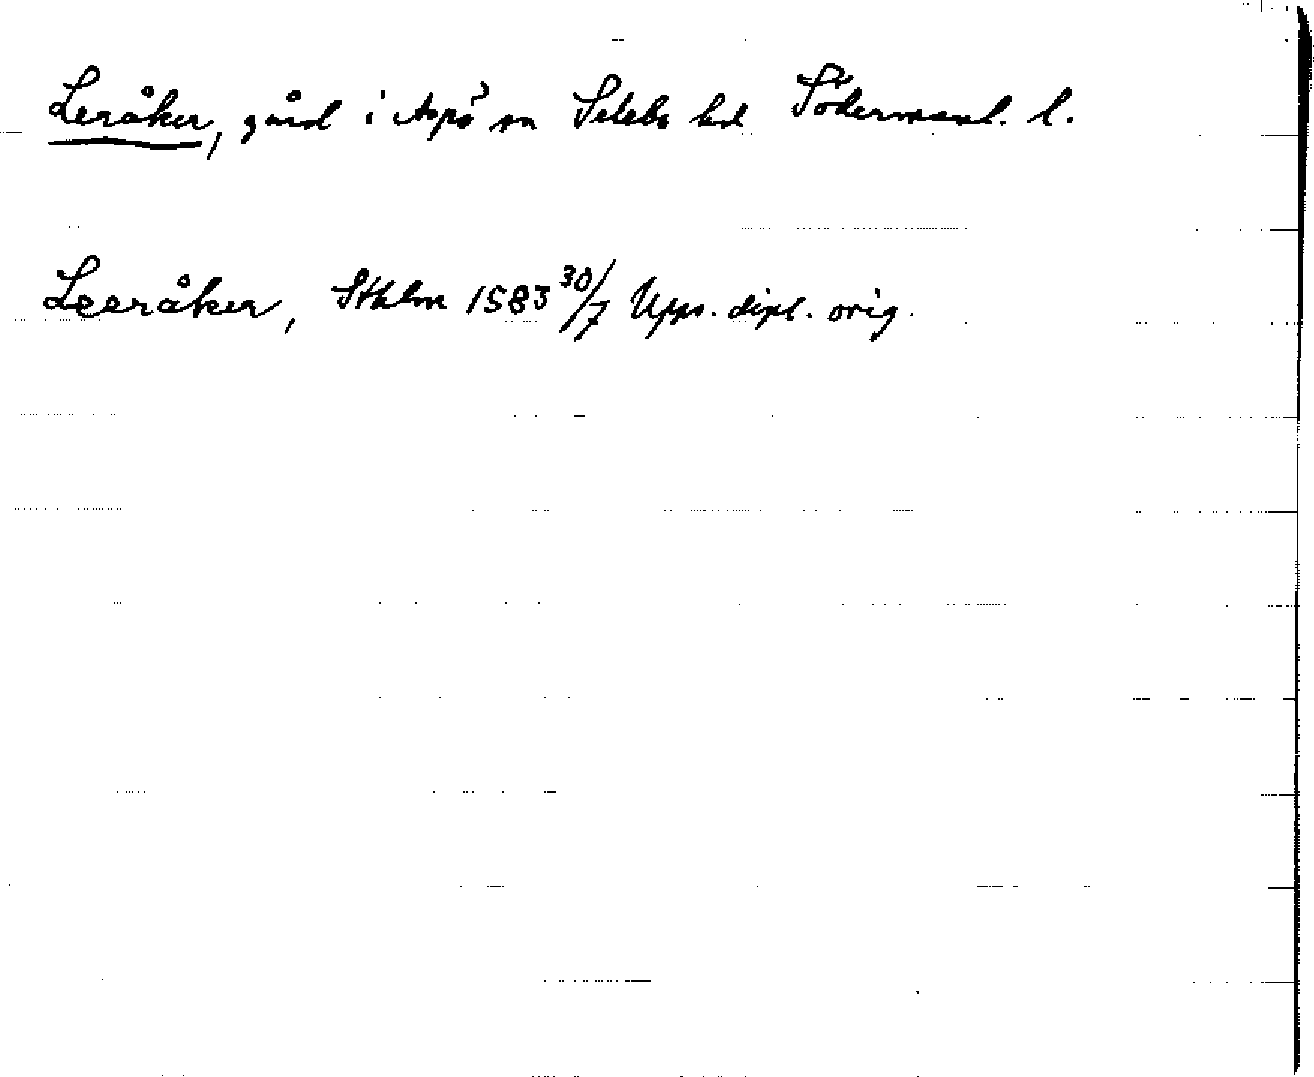 Leråker, gård i Aspö sn Selebo hd Södermanl. l.
Leeråker, Sthlm 1583 30/7 Upps. dipl. orig.